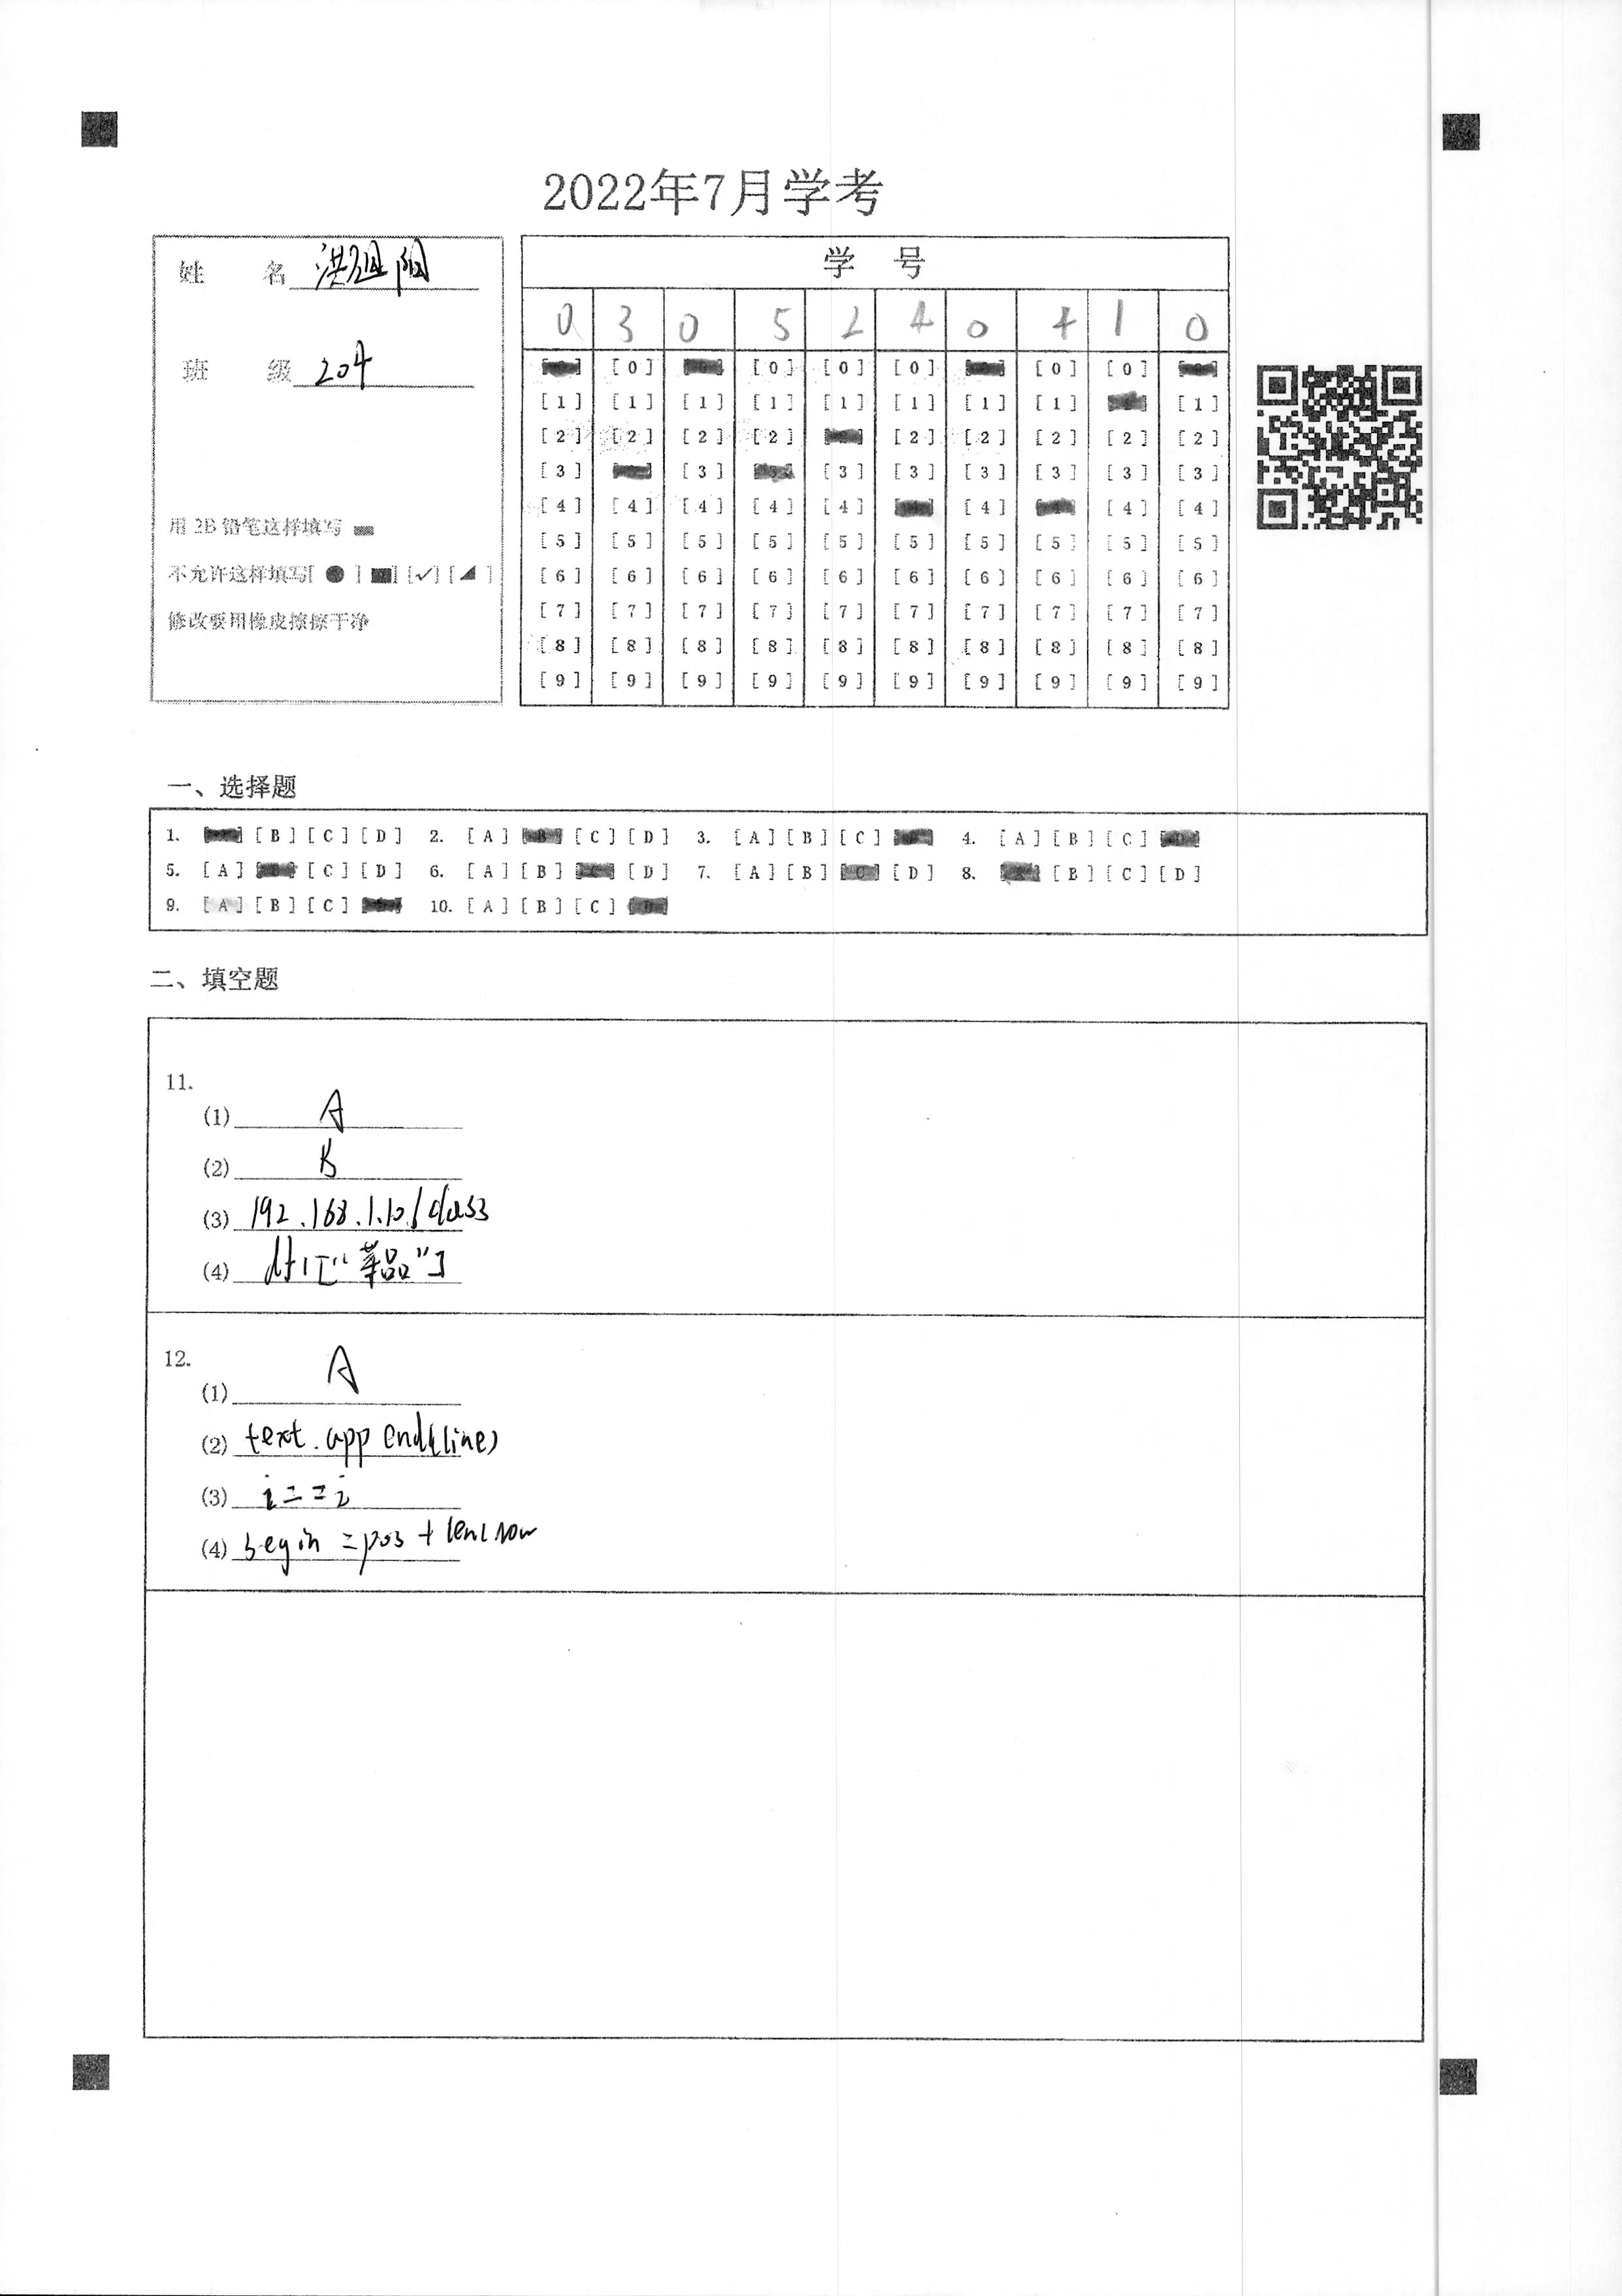 2022年7月学考
姓 名 洪祖阳
班 级 204
用 2B 铅笔这样填写
不允许这样填写[ ● ] [■] [✓] [◢ ]
修改要用橡皮擦擦干净
学 号
0 3 0 5 2 4 0 4 1 0
[0] [0] [0] [0] [0] [0]
[1] [1] [1] [1] [1] [1] [1] [1] [1]
[2] [2] [2] [2] [2] [2] [2] [2] [2]
[3] [3] [3] [3] [3] [3] [3] [3]
[4] [4] [4] [4] [4] [4] [4] [4]
[5] [5] [5] [5] [5] [5] [5] [5] [5] [5]
[6] [6] [6] [6] [6] [6] [6] [6] [6] [6]
[7] [7] [7] [7] [7] [7] [7] [7] [7] [7]
[8] [8] [8] [8] [8] [8] [8] [8] [8] [8]
[9] [9] [9] [9] [9] [9] [9] [9] [9] [9]
一、选择题
1. [B] [C] [D] 2. [A] [B] [C] [D] 3. [A] [B] [C] 4. [A] [B] [C] [D]
5. [A] [C] [D] 6. [A] [B] [D] 7. [A] [B] [C] [D] 8. [B] [C] [D]
9. [A] [B] [C] 10. [A] [B] [C] [D]
二、填空题
11.
(1) A
(2) B
(3) 192.168.1.10/class
(4) df1["菜品"]
12.
(1) A
(2) text.append(line)
(3) i==j
(4) begin=pos+len(now